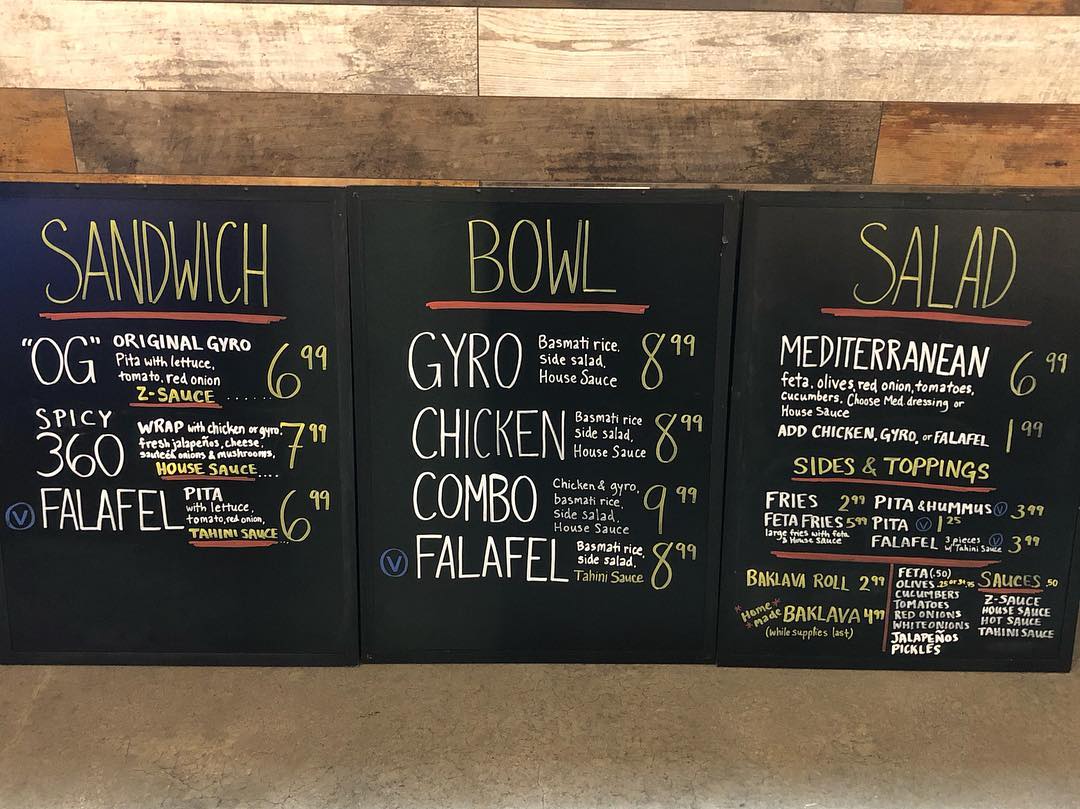 SANDWICH
"OG" ORIGINAL GYRO 6.99
Pita with lettuce,
tomato, red onion
Z-SAUCE ......
SPICY
360
WRAP with chicken or gyro, 7.99
fresh jalapeños, cheese,
onions & mushrooms,
HOUSE SAUCE....
V FALAFEL PITA 6.99
with lettuce,
tomato, red onion,
TAHINI SAUCE
BOWL
GYRO Basmati rice, 8.99
side salad,
House Sauce
CHICKEN Basmati rice 8.99
side salad,
House Sauce
COMBO Chicken & gyro, 9.99
basmati rice,
side salad,
House Sauce
V FALAFEL Basmati rice, 8.99
side salad,
Tahini Sauce
SALAD
MEDITERRANEAN 6.99
feta, olives, red onion, tomatoes,
cucumbers. Choose Med. dressing or
House Sauce
ADD CHICKEN, GYRO, or FALAFEL 1.99
SIDES & TOPPINGS
FRIES 2.99
FETA FRIES 5.99
large fries with feta
& House Sauce
PITA & HUMMUS V 3.99
PITA V 1.25
FALAFEL 3 pieces V 3.99
w/ Tahini Sauce
BAKLAVA ROLL 2.99
*Home made* BAKLAVA 4.99
(while supplies last)
FETA (.50)
OLIVES .25 or
CUCUMBERS
TOMATOES
RED ONIONS
WHITE ONIONS
JALAPEÑOS
PICKLES
SAUCES .50
Z-SAUCE
HOUSE SAUCE
HOT SAUCE
TAHINI SAUCE